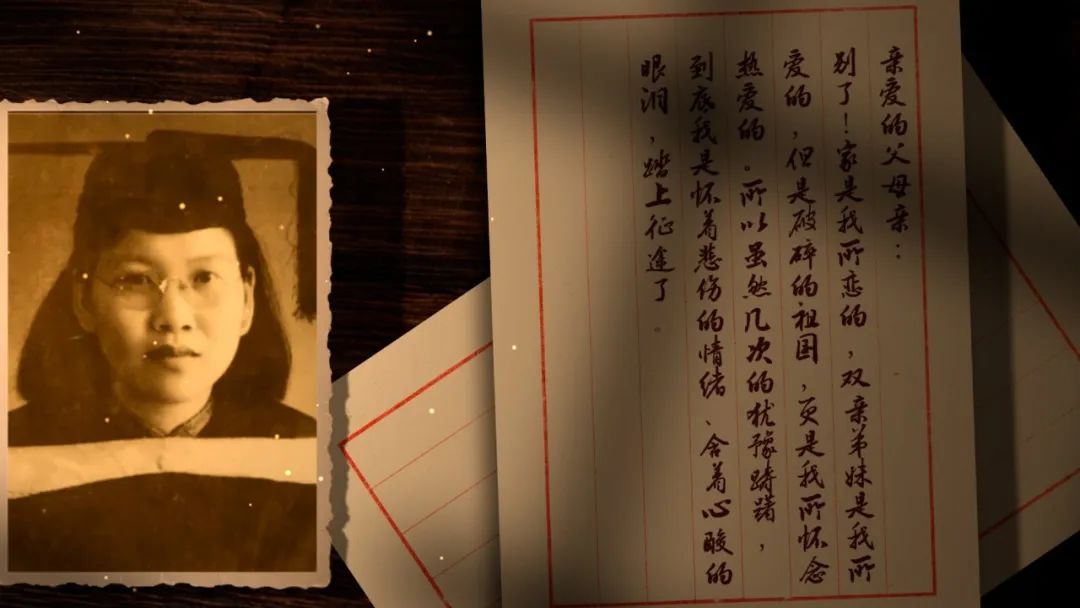 亲爱的父母亲：
别了！家是我所恋的，双亲弟妹是我所
爱的，但是破碎的祖国，更是我所怀念
热爱的。所以虽然几次的犹豫踌躇，
到底我是怀着悲伤的情绪、含着心酸的
眼泪，踏上征途了。